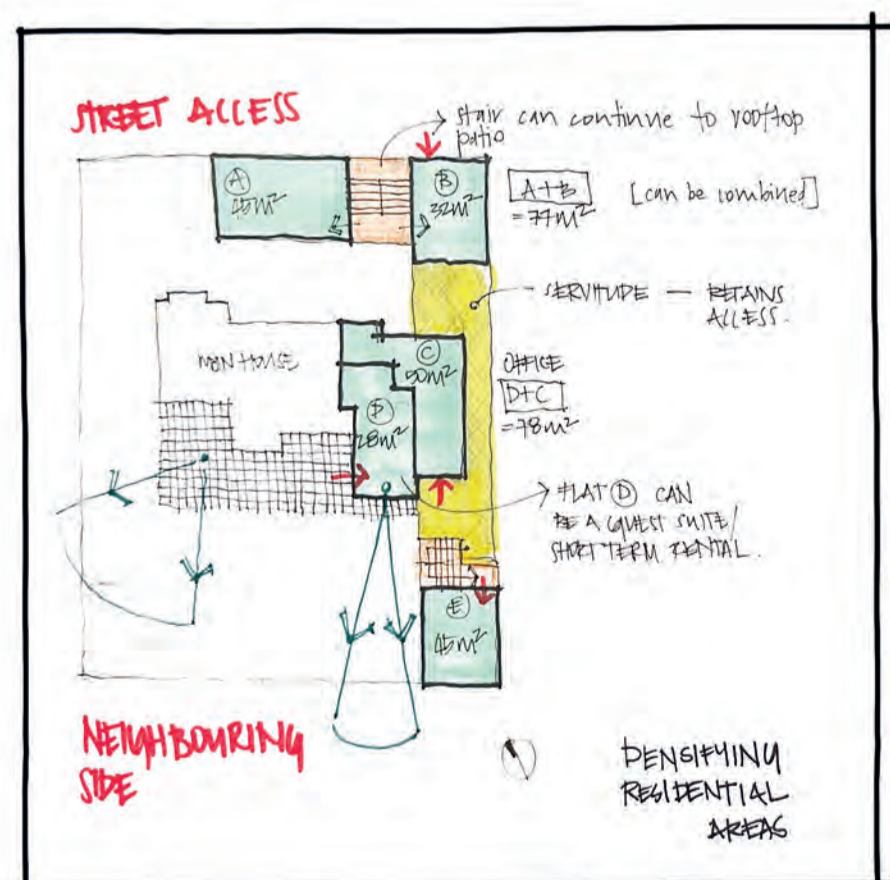 STREET ACCESS
stair can continue to rooftop
patio
A
45m²
B
32m²
A+B
[can be combined]
=77m²
SERVITUDE — RETAINS
ACCESS.
MAIN HOUSE
C
50m²
OFFICE
D+C
=78m²
D
28m²
FLAT D CAN
BE A GUEST SUITE/
SHORT TERM RENTAL.
E
45m²
NEIGHBOURING
SIDE
DENSIFYING
RESIDENTIAL
AREAS